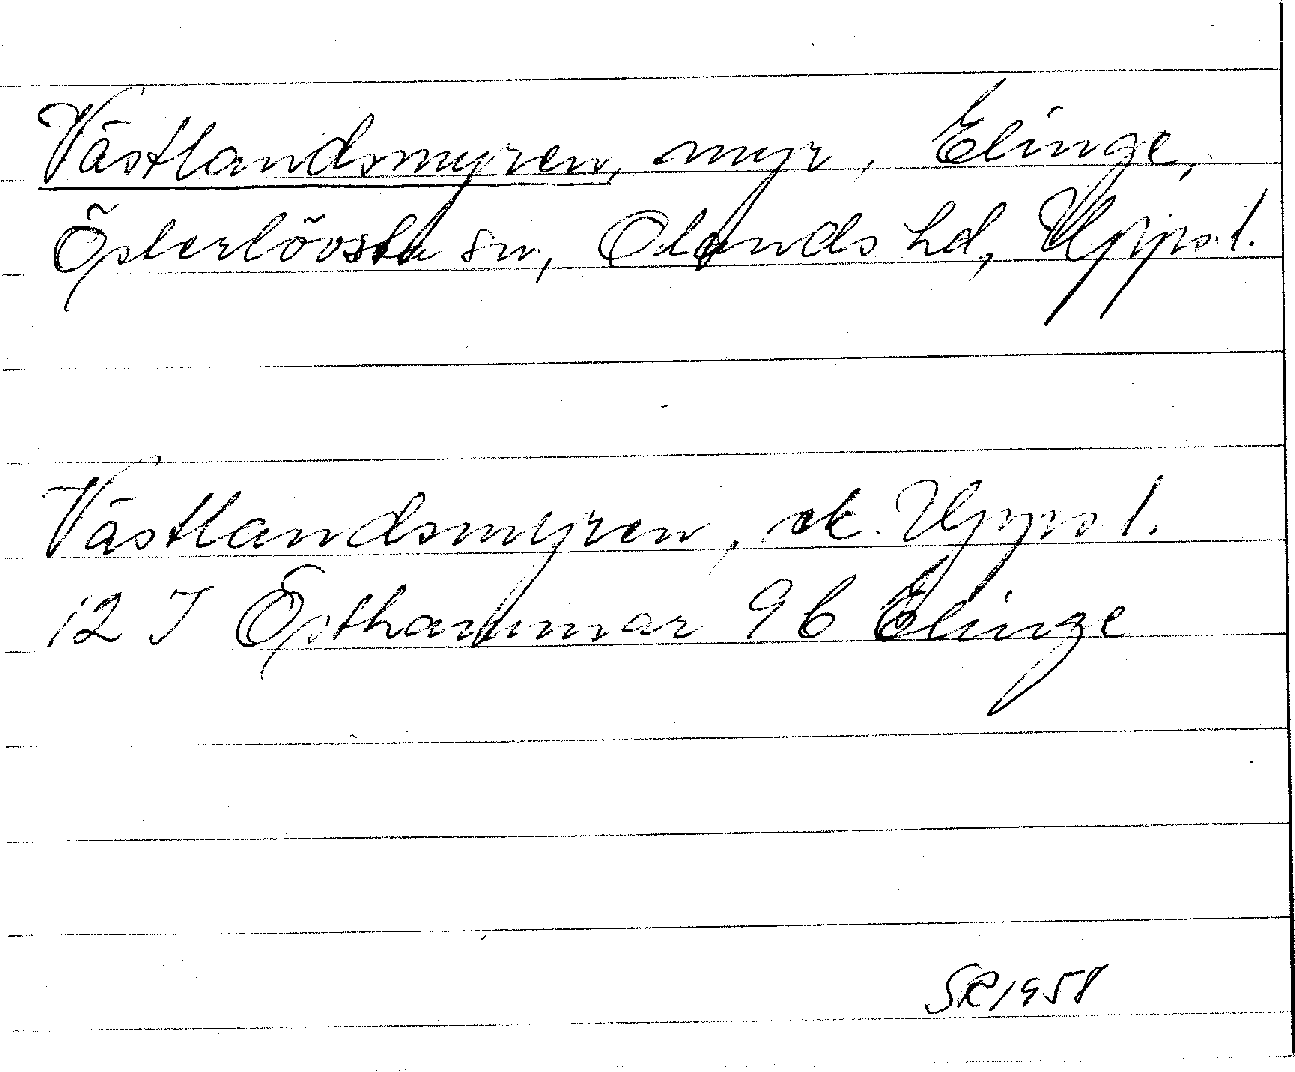 Västlandsmyren, myr, Elinge,
Österlövsta sn, Olands hd, Upps. l.
Västlandsmyren, ek. Upps l.
12 I Östhammar 9 b Elinge
SR 1958